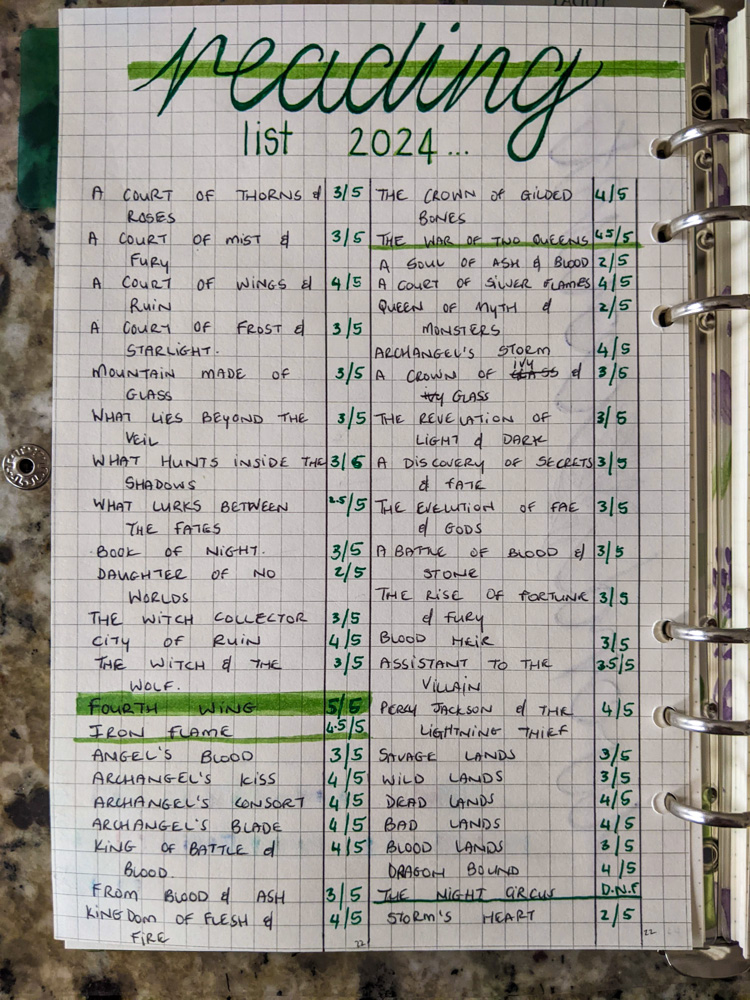 reading
list 2024...
A COURT OF THORNS & 3/5
ROSES
A COURT OF MIST & 3/5
FURY
A COURT OF WINGS & 4/5
RUIN
A COURT OF FROST & 3/5
STARLIGHT.
MOUNTAIN MADE OF 3/5
GLASS
WHAT LIES BEYOND THE 3/5
VEIL
WHAT HUNTS INSIDE THE 3/5
SHADOWS
WHAT LURKS BETWEEN 2.5/5
THE FATES
BOOK OF NIGHT. 3/5
DAUGHTER OF NO 2/5
WORLDS
THE WITCH COLLECTOR 3/5
CITY OF RUIN 4/5
THE WITCH & THE 3/5
WOLF.
FOURTH WING 5/5
IRON FLAME 4.5/5
ANGEL'S BLOOD 3/5
ARCHANGEL'S KISS 4/5
ARCHANGEL'S CONSORT 4/5
ARCHANGEL'S BLADE 4/5
KING OF BATTLE & 4/5
BLOOD.
FROM BLOOD & ASH 3/5
KINGDOM OF FLESH & 4/5
FIRE
22
THE CROWN OF GILDED 4/5
BONES
THE WAR OF TWO QUEENS 4.5/5
A SOUL OF ASH & BLOOD 2/5
A COURT OF SILVER FLAMES 4/5
QUEEN OF MYTH & 2/5
MONSTERS
ARCHANGEL'S STORM 4/5
A CROWN OF IVY & 3/5
GLASS
THE REVELATION OF 3/5
LIGHT & DARK
A DISCOVERY OF SECRETS 3/5
& FATE
THE EVELUTION OF FAE 3/5
& GODS
A BATTLE OF BLOOD & 3/5
STONE
THE RISE OF FORTUNE 3/5
& FURY
BLOOD HEIR 3/5
ASSISTANT TO THE 3.5/5
VILLAIN
PERCY JACKSON & THE 4/5
LIGHTNING THIEF
SAVAGE LANDS 3/5
WILD LANDS 3/5
DEAD LANDS 4/5
BAD LANDS 4/5
BLOOD LANDS 3/5
DRAGON BOUND 4/5
THE NIGHT CIRCUS D.N.F
STORM'S HEART 2/5
22